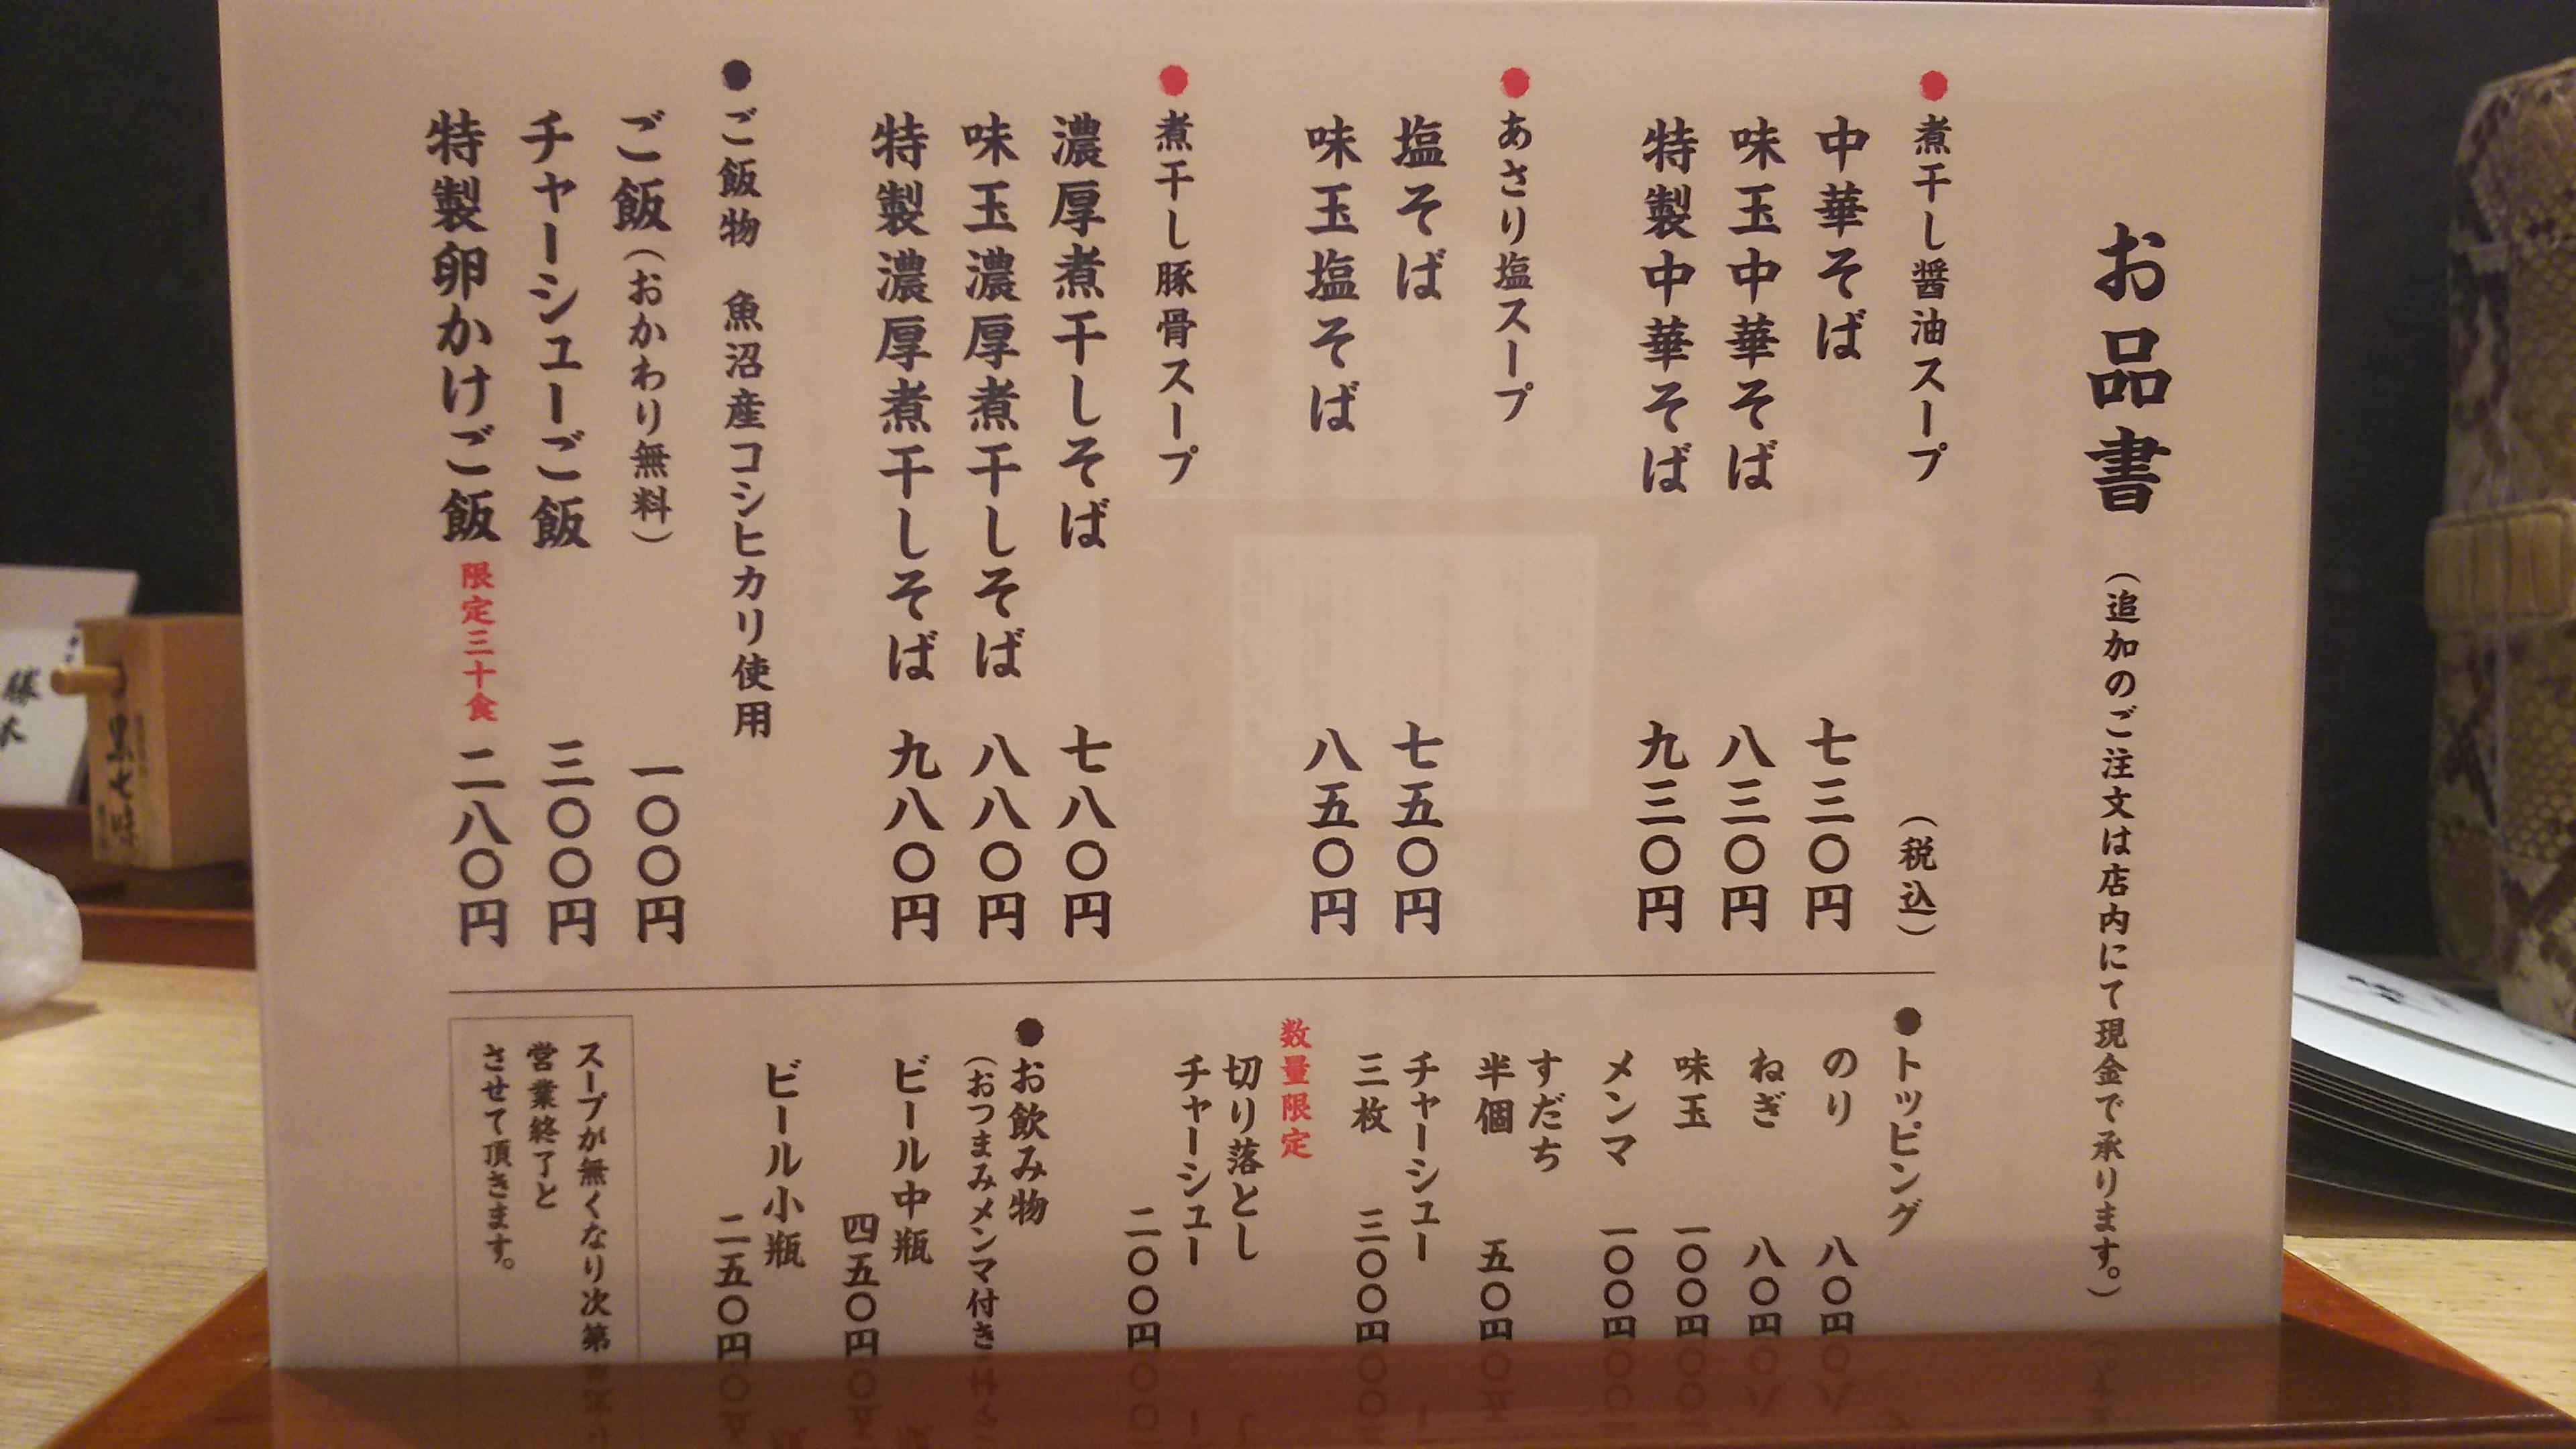 お品書
（追加のご注文は店内にて現金で承ります。）
●煮干し醤油スープ
（税込）
中華そば 七三〇円
味玉中華そば 八三〇円
特製中華そば 九三〇円
●あさり塩スープ
塩そば 七五〇円
味玉塩そば 八五〇円
●煮干し豚骨スープ
濃厚煮干しそば 七八〇円
味玉濃厚煮干しそば 八八〇円
特製濃厚煮干しそば 九八〇円
●ご飯物 魚沼産コシヒカリ使用
ご飯（おかわり無料） 一〇〇円
チャーシューご飯 三〇〇円
特製卵かけご飯 限定三十食 二八〇円
●トッピング
のり 八〇円
ねぎ 八〇円
味玉 一〇〇円
メンマ 一〇〇円
すだち
半個 五〇円
チャーシュー
三枚 三〇〇円
数量限定
切り落とし
チャーシュー
二〇〇円
●お飲み物
（おつまみメンマ付き
ビール中瓶
四五〇円
ビール小瓶
二五〇円
スープが無くなり次第
営業終了と
させて頂きます。
黒七味